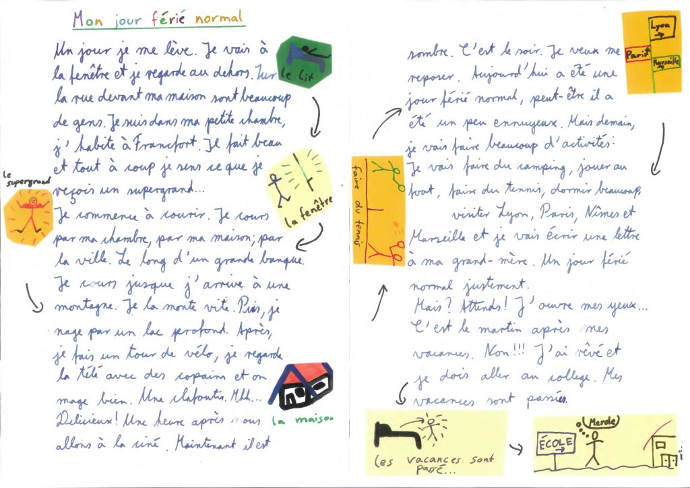 Mon jour férié normal
Un jour je me lève. Je vais à
la fenêtre et je regarde au dehors. Sur
la rue devant ma maison sont beaucoup
de gens. Je suis dans ma petite chambre,
j'habite à Francfort. Il fait beau
et tout à coup je sens ce que je
reçois un supergrand...
Je commence à courir. Je cours
par ma chambre, par ma maison, par
la ville. Le long d'un grande banque.
Je cours jusque j'arrive à une
montagne. Je la monte vite. Puis, je
nage par un lac profond. Après,
je fais un tour de vélo, je regarde
la télé avec des copains et on
mage bien. Une clafoutis. Mhh...
Delicieux! Une heure après nous
allons à la ciné. Maintenant il est
le lit
la fenêtre
le supergrand
la maison
sombre. C'est le soir. Je veux me
reposer. Aujourd'hui a été une
jour férié normal, peut-être il a
été un peu ennuyeux. Mais demain,
je vais faire beaucoup d'activités:
Je vais faire du camping, jouer au
foot, faire du tennis, dormir beaucoup,
visiter Lyon, Paris, Nîmes et
Marseille et je vais écrir une lettre
à ma grand-mère. Un jour férié
normal justement.
Mais? Attends! J'ouvre mes yeux...
C'est le martin après mes
vacances. Non!!! J'ai rêvé et
je dois aller au college. Mes
vacances sont passées.
Lyon
Paris
Marseille
faire du tennis
Les vacances sont
passé...
(Merde)
ÉCOLE